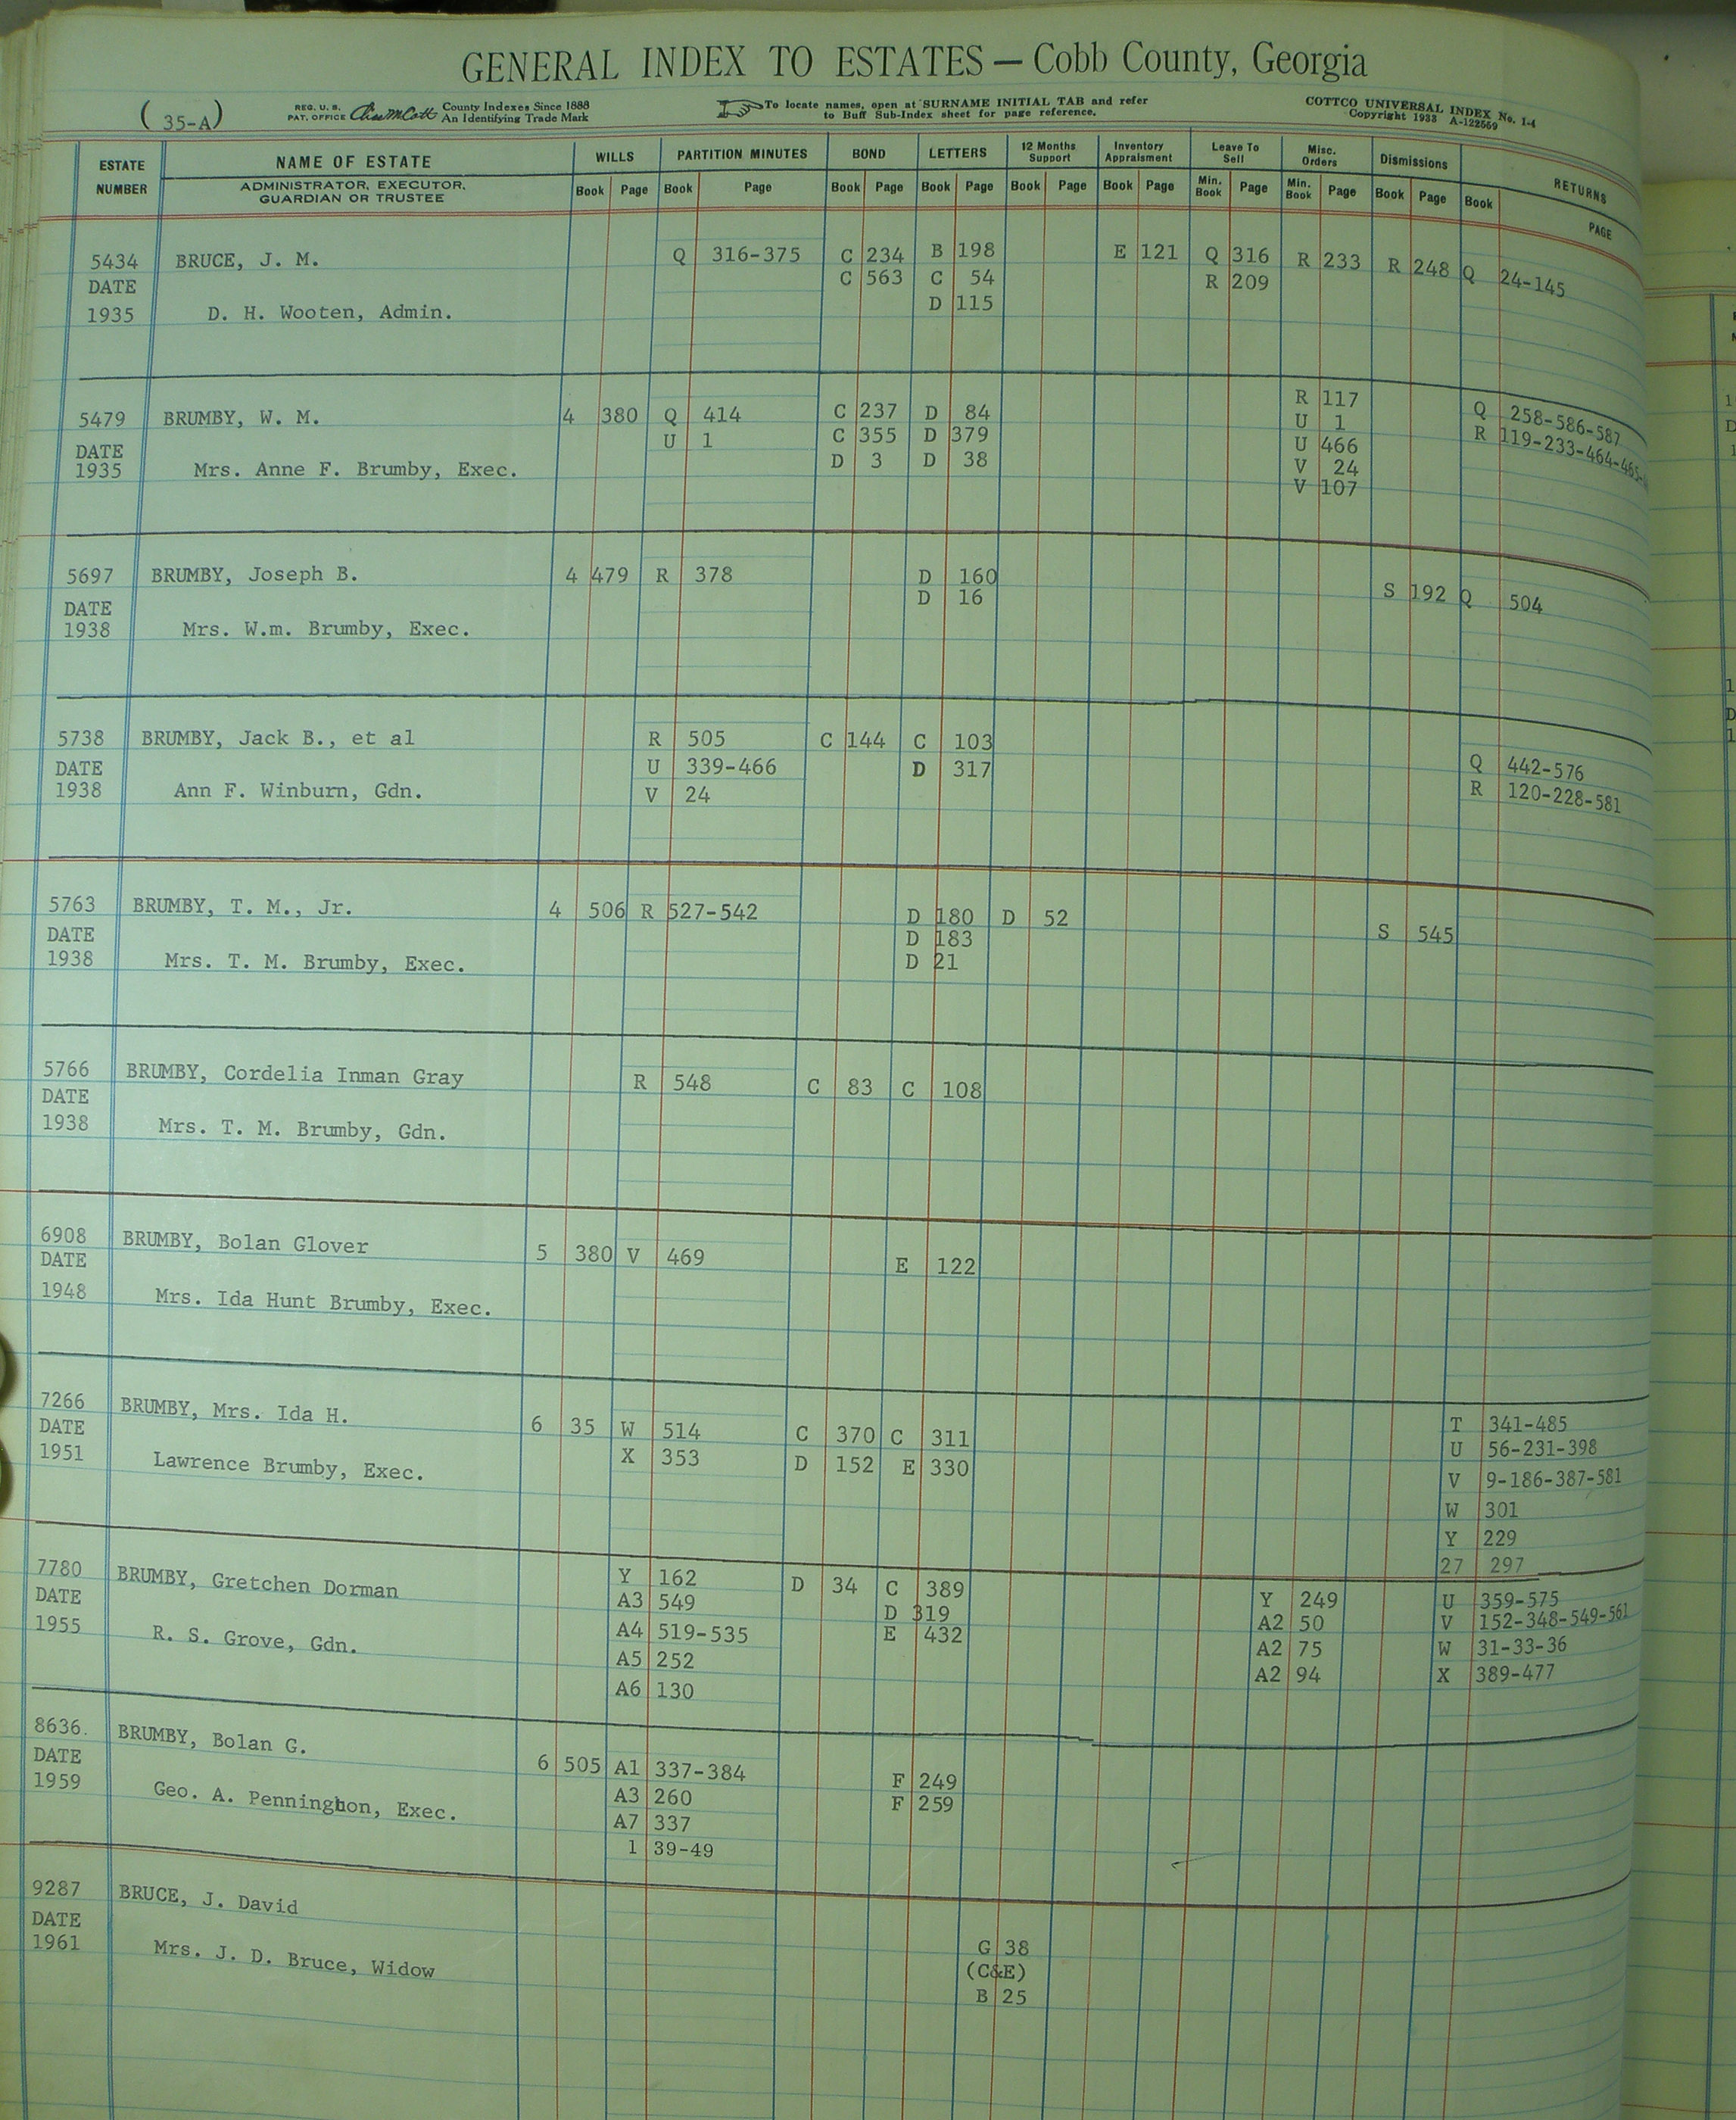 GENERAL INDEX TO ESTATES — Cobb County, Georgia
( 35-A )
REG. U. S. PAT. OFFICE County Indexes Since 1888
An Identifying Trade Mark
To locate names, open at SURNAME INITIAL TAB and refer
to Buff Sub-Index sheet for page reference.
COTTCO UNIVERSAL INDEX No. 1-4
Copyright 1933 A-122569
ESTATE NUMBER NAME OF ESTATE WILLS PARTITION MINUTES BOND LETTERS 12 Months Support Inventory Appraisment Leave To Sell Misc. Orders Dismissions RETURNS
ADMINISTRATOR, EXECUTOR, GUARDIAN OR TRUSTEE Book Page Book Page Book Page Book Page Book Page Book Page Min. Book Page Min. Book Page Book Page Book PAGE
5434 BRUCE, J. M. Q 316-375 C 234 B 198 E 121 Q 316 R 233 R 248 Q 24-145
DATE C 563 C 54 R 209
1935 D. H. Wooten, Admin. D 115
5479 BRUMBY, W. M. 4 380 Q 414 C 237 D 84 R 117 Q 258-586-587
U 1 C 355 D 379 U 1 R 119-233-464-465-
DATE D 3 D 38 U 466
1935 Mrs. Anne F. Brumby, Exec. V 24
V 107
5697 BRUMBY, Joseph B. 4 479 R 378 D 160 S 192 Q 504
DATE D 16
1938 Mrs. W.m. Brumby, Exec.
5738 BRUMBY, Jack B., et al R 505 C 144 C 103 Q 442-576
DATE U 339-466 D 317 R 120-228-581
1938 Ann F. Winburn, Gdn. V 24
5763 BRUMBY, T. M., Jr. 4 506 R 527-542 D 180 D 52 S 545
DATE D 183
1938 Mrs. T. M. Brumby, Exec. D 21
5766 BRUMBY, Cordelia Inman Gray R 548 C 83 C 108
DATE
1938 Mrs. T. M. Brumby, Gdn.
6908 BRUMBY, Bolan Glover 5 380 V 469 E 122
DATE
1948 Mrs. Ida Hunt Brumby, Exec.
7266 BRUMBY, Mrs. Ida H. 6 35 W 514 C 370 C 311 T 341-485
DATE X 353 D 152 E 330 U 56-231-398
1951 Lawrence Brumby, Exec. V 9-186-387-581
W 301
Y 229
27 297
7780 BRUMBY, Gretchen Dorman Y 162 D 34 C 389 Y 249 U 359-575
DATE A3 549 D 319 A2 50 V 152-348-549-561
1955 R. S. Grove, Gdn. A4 519-535 E 432 A2 75 W 31-33-36
A5 252 A2 94 X 389-477
A6 130
8636. BRUMBY, Bolan G. 6 505 A1 337-384 F 249
DATE A3 260 F 259
1959 Geo. A. Penninghon, Exec. A7 337
1 39-49
9287 BRUCE, J. David
DATE G 38
1961 Mrs. J. D. Bruce, Widow (C&E)
B 25